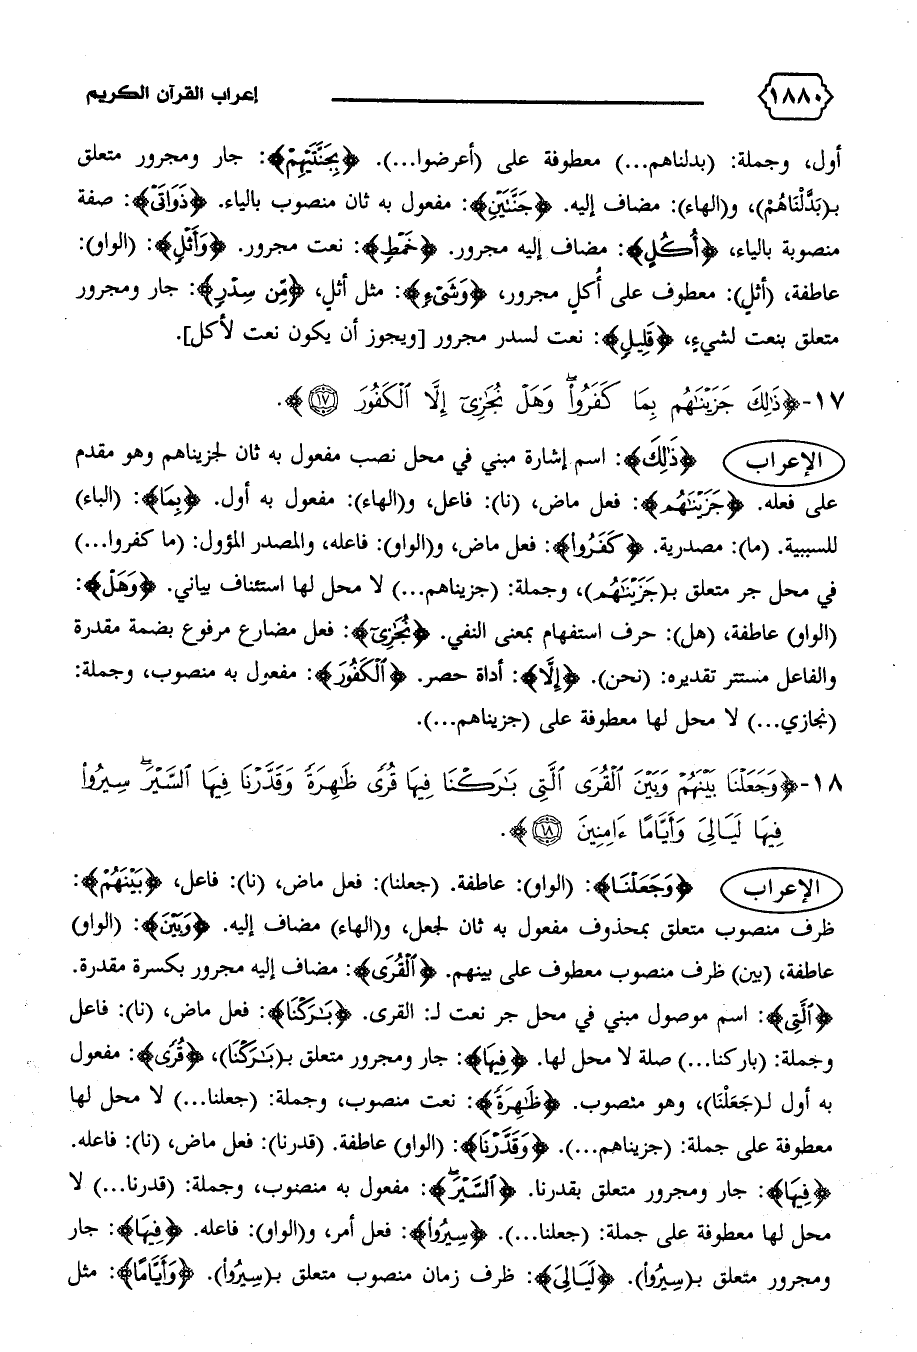 ١٨٨٠ إعراب القرآن الكريم
أول، وجملة: (بدلناهم...) معطوفة على (أعرضوا...). ﴿بِجَنَّتَيْهِمْ﴾: جار ومجرور متعلق
بـ(بَدَّلْنَاهُمْ)، و(الهاء): مضاف إليه. ﴿جَنَّتَيْنِ﴾: مفعول به ثان منصوب بالياء. ﴿ذَوَاتَىْ﴾: صفة
منصوبة بالياء، ﴿أُكُلٍ﴾: مضاف إليه مجرور. ﴿خَمْطٍ﴾: نعت مجرور. ﴿وَأَثْلٍ﴾: (الواو):
عاطفة، (أثل): معطوف على أُكل مجرور، ﴿وَشَىْءٍ﴾: مثل أثلٍ، ﴿مِّن سِدْرٍ﴾: جار ومجرور
متعلق بنعت لشيءٍ، ﴿قَلِيلٍ﴾: نعت لسدر مجرور [ويجوز أن يكون نعت لأكل].
١٧-﴿ذَٰلِكَ جَزَيْنَـٰهُم بِمَا كَفَرُوا۟ ۖ وَهَلْ نُجَـٰزِىٓ إِلَّا ٱلْكَفُورَ ١٧﴾.
الإعراب ﴿ذَٰلِكَ﴾: اسم إشارة مبني في محل نصب مفعول به ثان لجزيناهم وهو مقدم
على فعله. ﴿جَزَيْنَـٰهُم﴾: فعل ماض، (نا): فاعل، و(الهاء): مفعول به أول. ﴿بِمَا﴾: (الباء)
للسببية. (ما): مصدرية. ﴿كَفَرُوا۟﴾: فعل ماض، و(الواو): فاعله، والمصدر المؤول: (ما كفروا...)
في محل جر متعلق بـ(جَزَيْنَـٰهُم)، وجملة: (جزيناهم...) لا محل لها استئناف بياني. ﴿وَهَلْ﴾:
(الواو) عاطفة، (هل): حرف استفهام بمعنى النفي. ﴿نُجَـٰزِىٓ﴾: فعل مضارع مرفوع بضمة مقدرة
والفاعل مستتر تقديره: (نحن). ﴿إِلَّا﴾: أداة حصر. ﴿ٱلْكَفُورَ﴾: مفعول به منصوب، وجملة:
(نجازي...) لا محل لها معطوفة على (جزيناهم...).
١٨-﴿وَجَعَلْنَا بَيْنَهُمْ وَبَيْنَ ٱلْقُرَى ٱلَّتِى بَـٰرَكْنَا فِيهَا قُرًى ظَـٰهِرَةً وَقَدَّرْنَا فِيهَا ٱلسَّيْرَ ۖ سِيرُوا۟
فِيهَا لَيَالِىَ وَأَيَّامًا ءَامِنِينَ ١٨﴾.
الإعراب ﴿وَجَعَلْنَا﴾: (الواو): عاطفة. (جعلنا): فعل ماض، (نا): فاعل، ﴿بَيْنَهُمْ﴾:
ظرف منصوب متعلق بمحذوف مفعول به ثان لجعل، و(الهاء) مضاف إليه. ﴿وَبَيْنَ﴾: (الواو)
عاطفة، (بين) ظرف منصوب معطوف على بينهم. ﴿ٱلْقُرَى﴾: مضاف إليه مجرور بكسرة مقدرة.
﴿ٱلَّتِى﴾: اسم موصول مبني في محل جر نعت لـ: القرى. ﴿بَـٰرَكْنَا﴾: فعل ماض، (نا): فاعل
وجملة: (باركنا...) صلة لا محل لها. ﴿فِيهَا﴾: جار ومجرور متعلق بـ(بَـٰرَكْنَا)، ﴿قُرًى﴾: مفعول
به أول لـ(جَعَلْنَا)، وهو منصوب. ﴿ظَـٰهِرَةً﴾: نعت منصوب، وجملة: (جعلنا...) لا محل لها
معطوفة على جملة: (جزيناهم...). ﴿وَقَدَّرْنَا﴾: (الواو) عاطفة. (قدرنا): فعل ماض، (نا): فاعله.
﴿فِيهَا﴾: جار ومجرور متعلق بقدرنا. ﴿ٱلسَّيْرَ ۖ﴾: مفعول به منصوب، وجملة: (قدرنا...) لا
محل لها معطوفة على جملة: (جعلنا...). ﴿سِيرُوا۟﴾: فعل أمر، و(الواو): فاعله. ﴿فِيهَا﴾: جار
ومجرور متعلق بـ(سِيرُوا۟). ﴿لَيَالِىَ﴾: ظرف زمان منصوب متعلق بـ(سِيرُوا۟). ﴿وَأَيَّامًا﴾: مثل